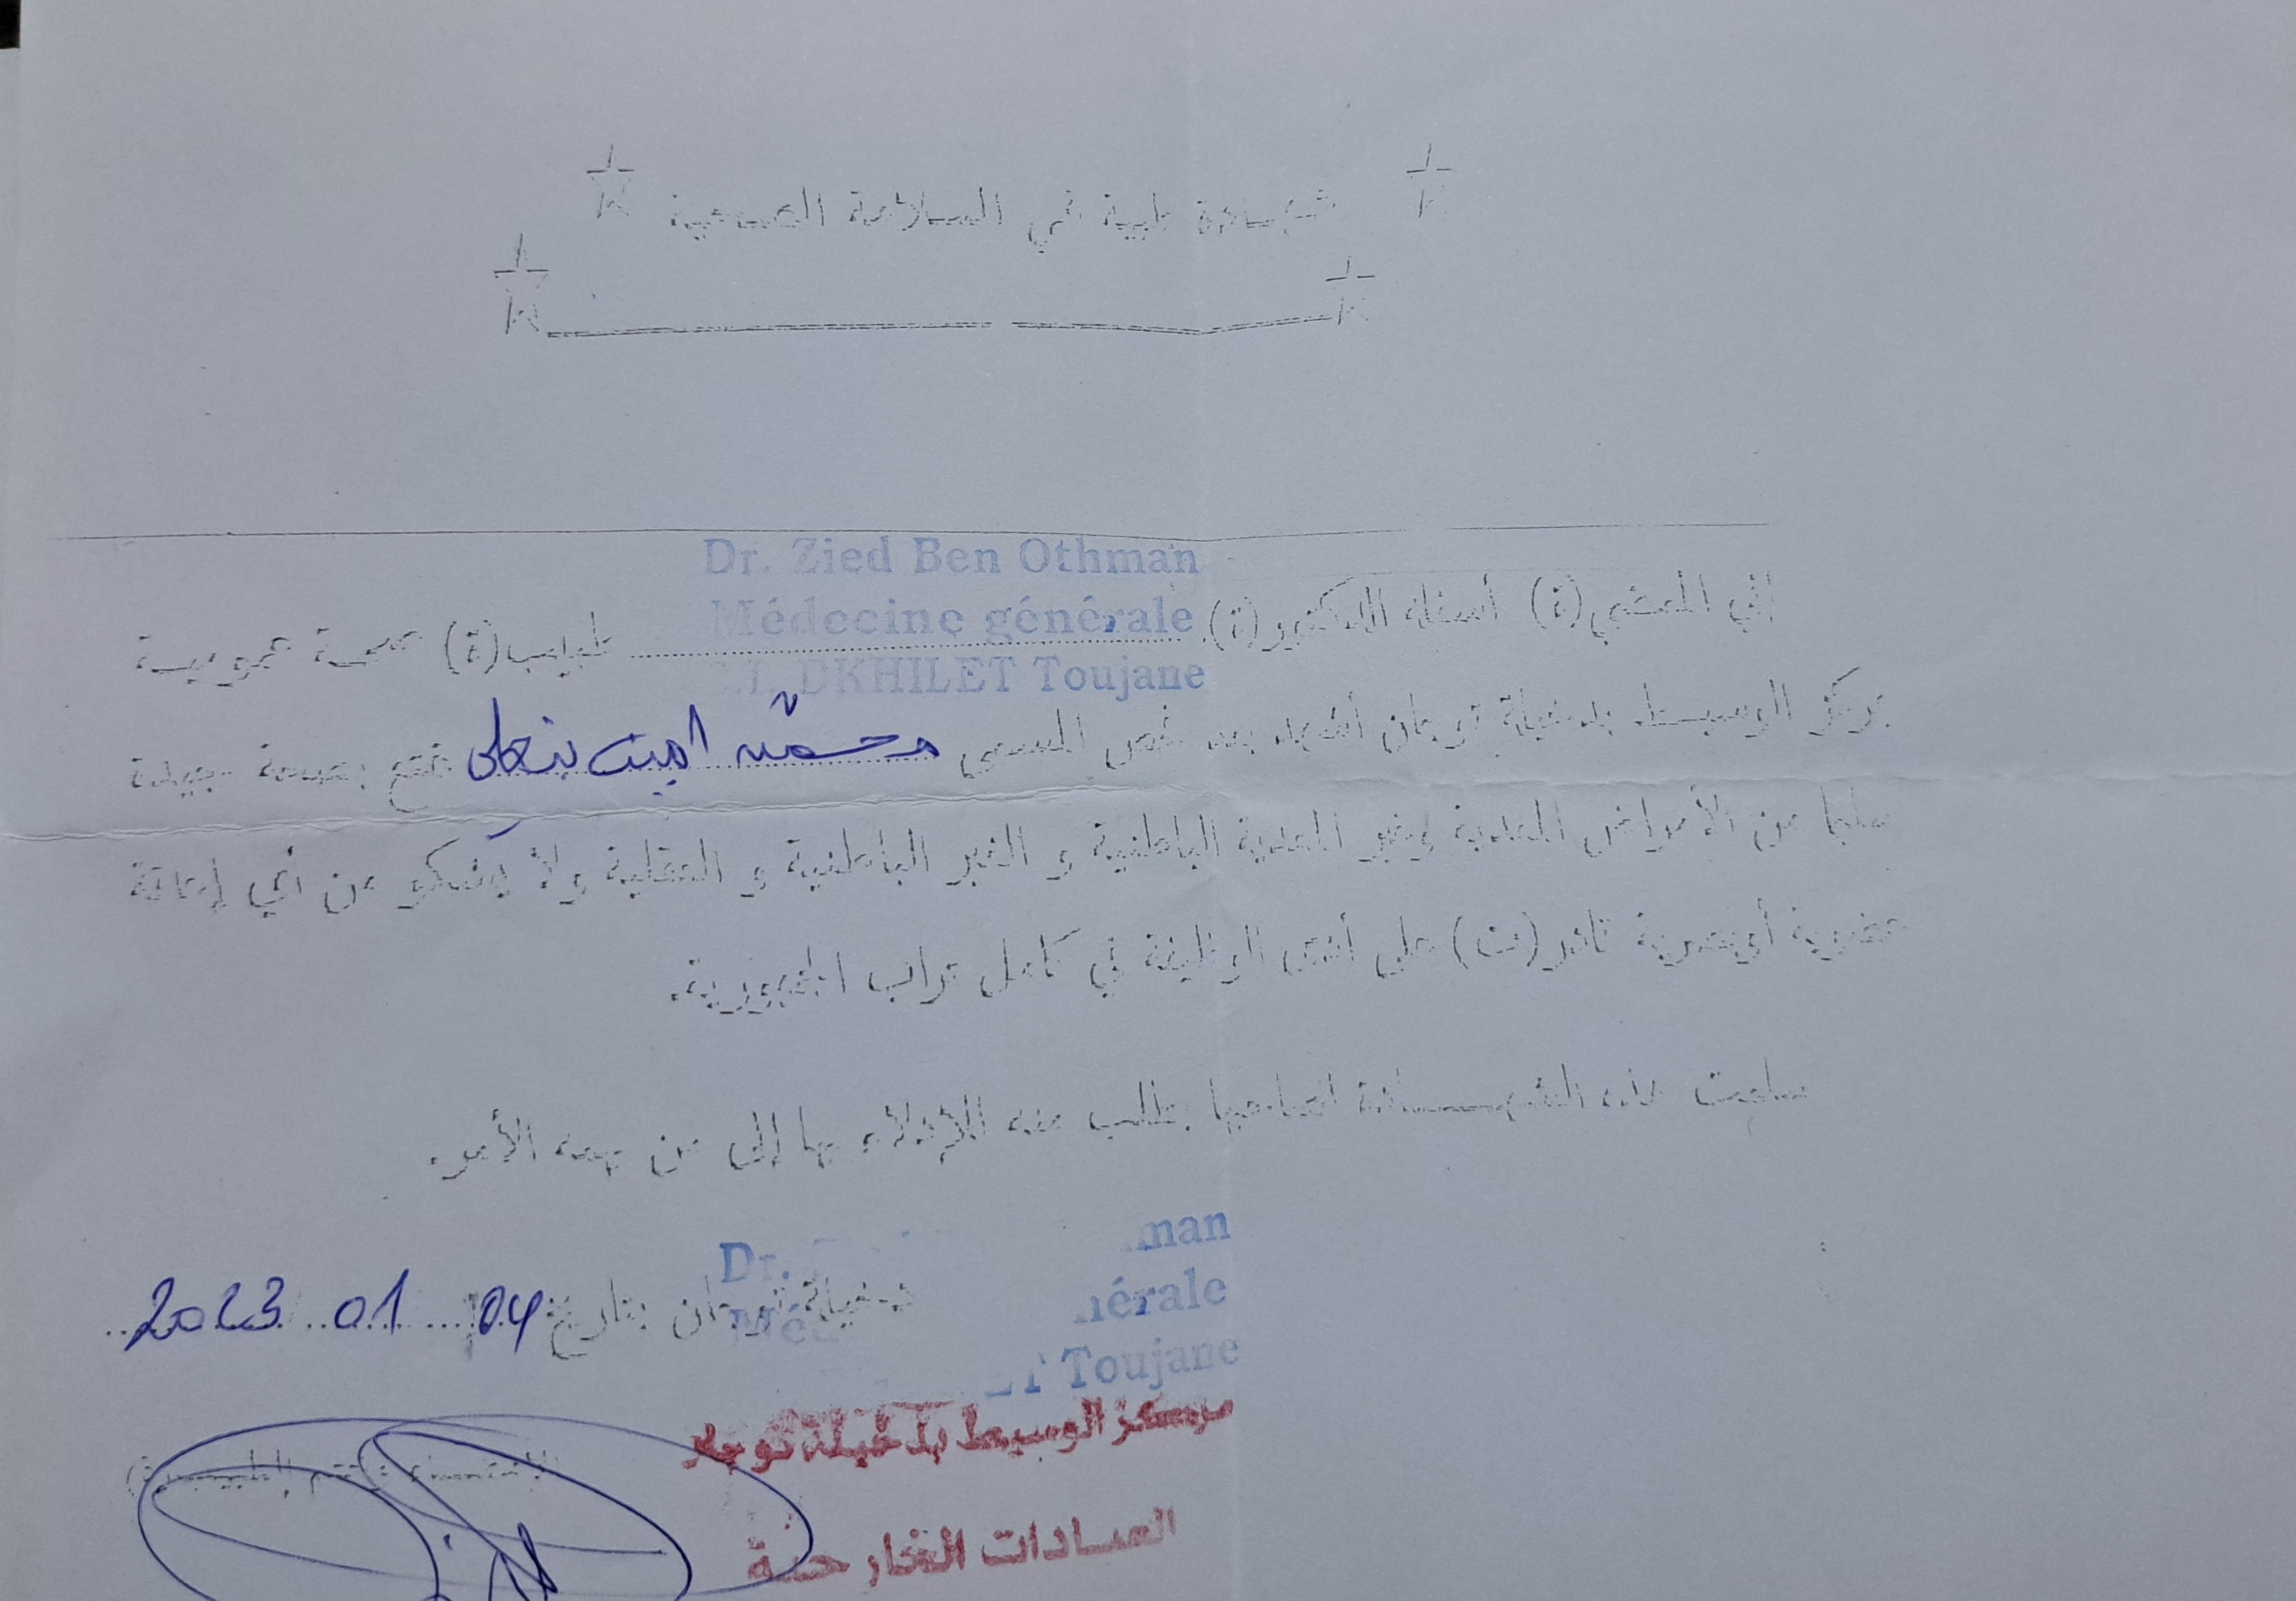 شهادة طبية في السلامة الصحية
Dr. Zied Ben Othman
Médecine générale
DKHILET Toujane
إني الممضي(ة) أسفله الدكتور(ة) طبيب(ة) صحة عمومية
بمركز الوسيط بدخيلة توجان أشهد بعد فحص المسمى محمد امين بنعلي تمتع بصحة جيدة
سليما من الأمراض المعدية وغير المعدية الباطنية و الغير الباطنية و العقلية ولا يشكو من أي إعاقة
عضوية أو بصرية قادر(ت) على أنقى الوظيفة في كامل تراب الجمهورية.
سلمت هذه الشهادة لصاحبها بطلب منه للإدلاء بها إلى من يهمه الأمر.
Dr. man
Méd nérale
ET Toujane
دخيلة توجان بتاريخ 04 01 2023
الإمضاء وختم الطبيب(ة)
مركز الوسيط بدخيلة توجان
العيادات الخارجية